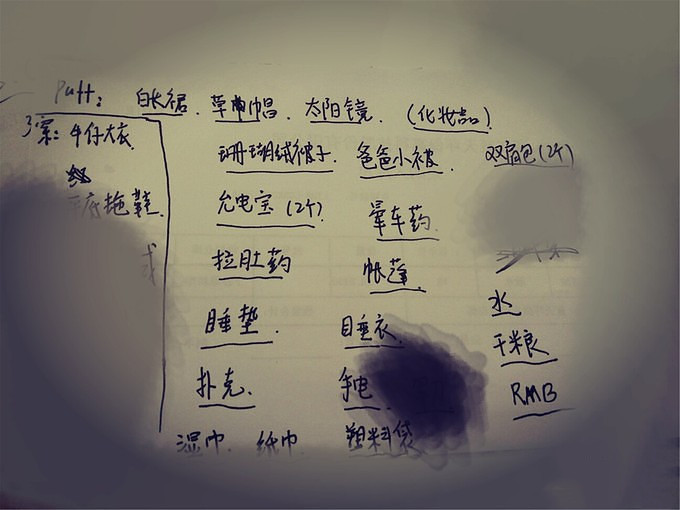 Putt: 白长裙. 草帽 太阳镜. (化妆品)
牛仔大衣 珊瑚绒被子. 爸爸小被. 双肩包(2个)
底拖鞋. 充电宝(2个) 晕车药.
拉肚药 帐篷
水
睡垫. 睡衣.
干粮
扑克. 手电 RMB
湿巾. 纸巾 塑料袋